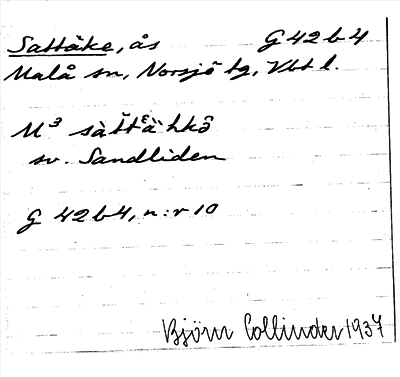 Sattåke, ås G 42 b 4
Malå sn, Norsjö tg, Vbt l.
M³ sàt̄tᵋä̀hkô
sv. Sandliden
G 42 b 4, n:r 10
Björn Collinder 1937